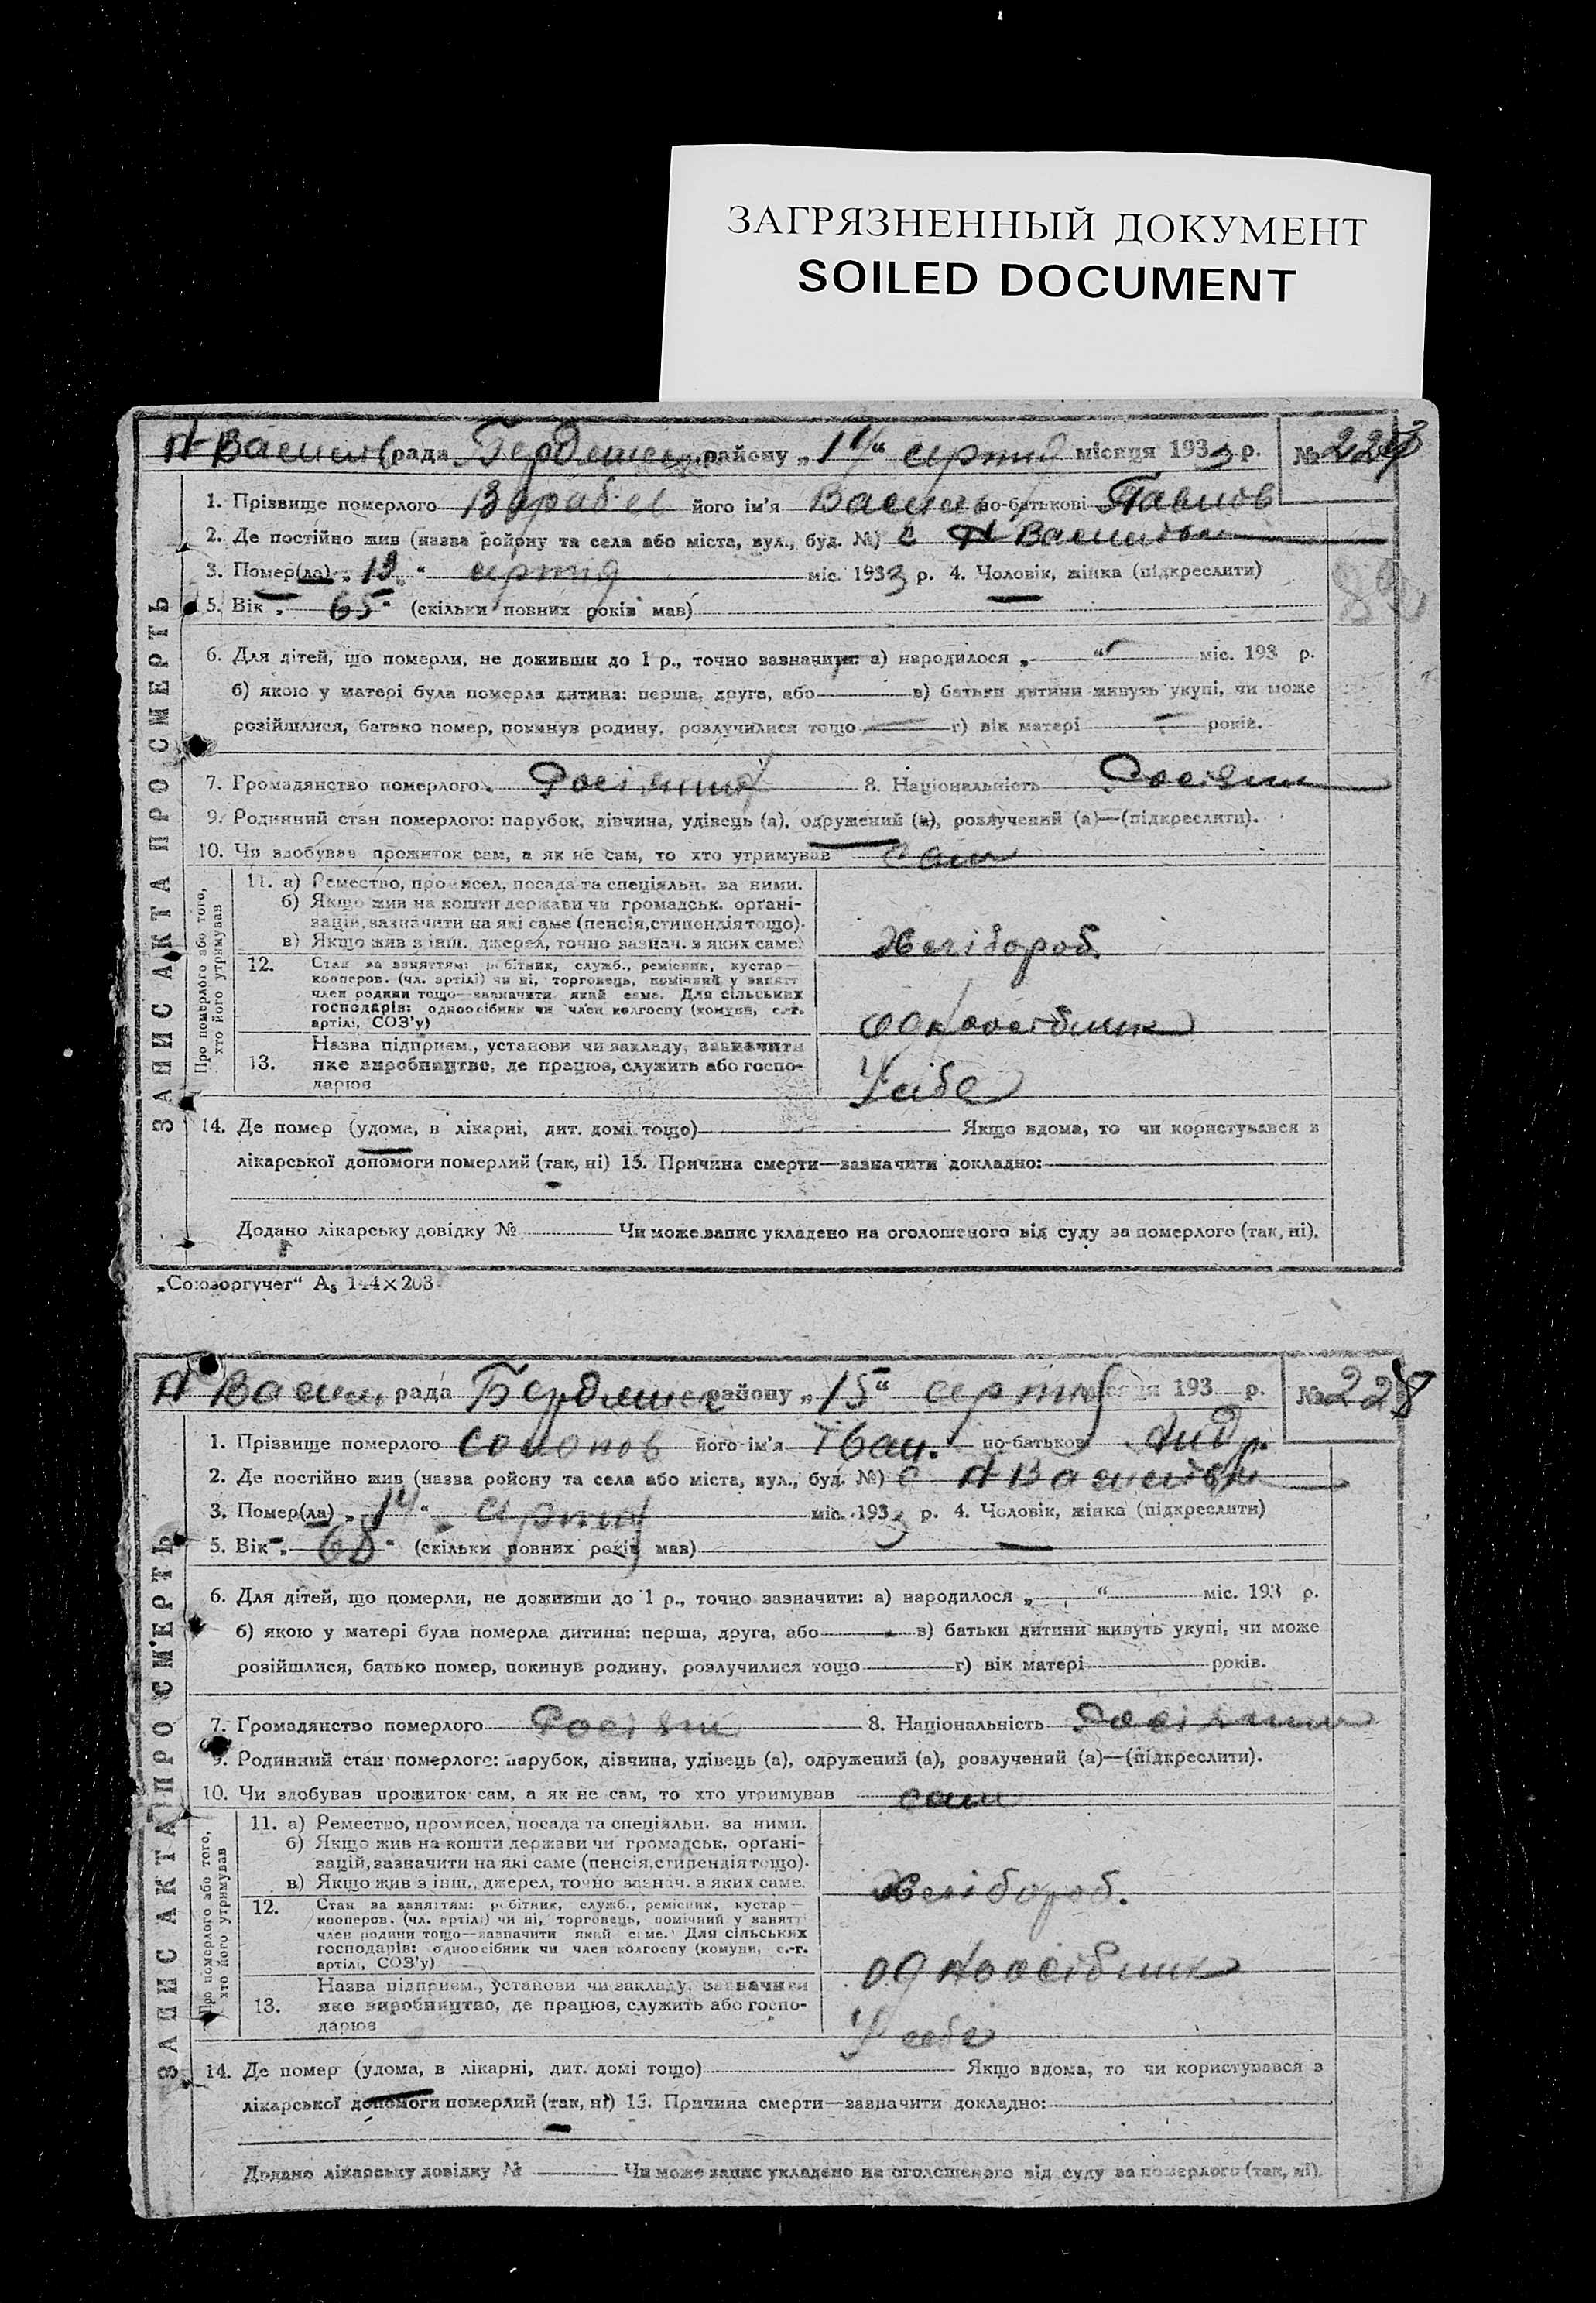 ЗАГРЯЗНЕННЫЙ ДОКУМЕНТ
SOILED DOCUMENT
рада района „14“ серпня місяця 1933 р. №
1. Прізвище померлого його ім'я Василь по-батькові Павлов
2. Де постійно жив (назва ройону та села або міста, вул., буд. №) с
3. Помер(ла) „13“ серпня міс. 1933 р. 4. Чоловік, жінка (підкреслити)
5. Вік „65“ (скільки повних років мав)
6. Для дітей, що померли, не доживши до 1 р., точно зазначити: а) народилося „ “ міс. 193 р.
б) якою у матері була померла дитина: перша, друга, або в) батьки дитини живуть укупі, чи може
розійшлися, батько помер, покинув родину, розлучилися тощо г) вік матері років.
7. Громадянство померлого 8. Національність Росіянин
9. Родинний стан померлого: парубок, дівчина, удівець (а), одружений (а), розлучений (а)—(підкреслити).
10. Чи здобував прожиток сам, а як не сам, то хто утримував сам
ЗАПИС АКТА ПРО СМЕРТЬ
Про померлого або того, хто його утримував
11. а) Ремество, промисел, посада та спеціяльн. за ними.
б) Якщо жив на кошти держави чи громадськ. органі-
зацій, зазначити на які саме (пенсія, стипендія тощо).
в) Якщо жив з інш. джерел, точно зазнач. з яких саме.
Хлібороб
12. Стан за заняттям: робітник, служб., ремісник, кустар—
кооперов. (чл. артілі) чи ні, торговець, помічний у занятті
член родини тощо—зазначити який саме. Для сільських
господарів: одноосібник чи член колгоспу (комуни, с.-г.
артілі, СОЗ'у)
одноосібник
13. Назва підприєм., установи чи закладу, зазначити
яке виробництво, де працює, служить або госпо-
дарює
У себе
14. Де помер (удома, в лікарні, дит. домі тощо) Якщо вдома, то чи користувався з
лікарської допомоги померлий (так, ні) 15. Причина смерти—зазначити докладно:
Додано лікарську довідку № Чи може запис укладено на оголошеного від суду за померлого (так, ні).
„Союзоргучет“ А₅ 144×203
рада района „15“ серпня місяця 193 р. № 228
1. Прізвище померлого його ім'я Іван. по-батькові Андр.
2. Де постійно жив (назва ройону та села або міста, вул., буд. №) с
3. Помер(ла) „14“ серпня міс. 1933 р. 4. Чоловік, жінка (підкреслити)
5. Вік „68“ (скільки повних років мав)
6. Для дітей, що померли, не доживши до 1 р., точно зазначити: а) народилося „ “ міс. 193 р.
б) якою у матері була померла дитина: перша, друга, або в) батьки дитини живуть укупі, чи може
розійшлися, батько помер, покинув родину, розлучилися тощо г) вік матері років.
7. Громадянство померлого 8. Національність Росіянин
9. Родинний стан померлого: парубок, дівчина, удівець (а), одружений (а), розлучений (а)—(підкреслити).
10. Чи здобував прожиток сам, а як не сам, то хто утримував сам
ЗАПИС АКТА ПРО СМЕРТЬ
Про померлого або того, хто його утримував
11. а) Ремество, промисел, посада та спеціяльн. за ними.
б) Якщо жив на кошти держави чи громадськ. органі-
зацій, зазначити на які саме (пенсія, стипендія тощо).
в) Якщо жив з інш. джерел, точно зазнач. з яких саме.
Хлібороб.
12. Стан за заняттям: робітник, служб., ремісник, кустар—
кооперов. (чл. артілі) чи ні, торговець, помічний у занятті
член родини тощо—зазначити який саме. Для сільських
господарів: одноосібник чи член колгоспу (комуни, с.-г.
артілі, СОЗ'у)
одноосібник
13. Назва підприєм., установи чи закладу, зазначити
яке виробництво, де працює, служить або госпо-
дарює
У себе
14. Де помер (удома, в лікарні, дит. домі тощо) Якщо вдома, то чи користувався з
лікарської допомоги померлий (так, ні) 15. Причина смерти—зазначити докладно:
Додано лікарську довідку № Чи може запис укладено на оголошеного від суду за померлого (так, ні).